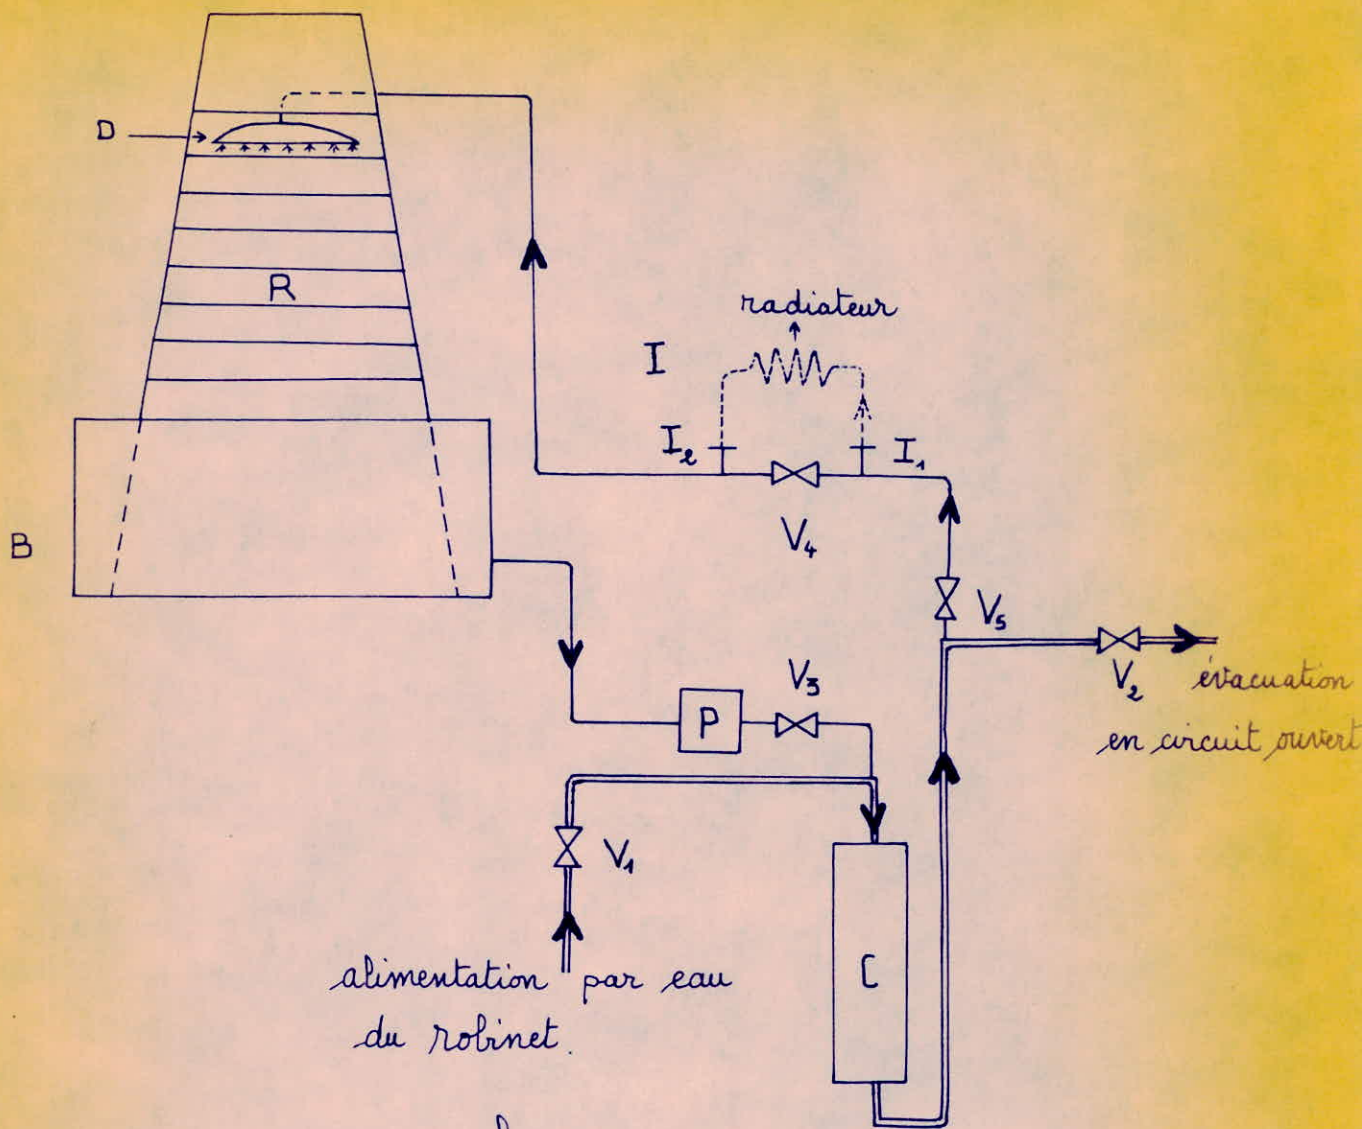 D
R
radiateur
I
I₂
I₁
V₄
B
V₅
V₃
V₂
évacuation
P
en circuit ouvert
V₁
C
alimentation par eau
du robinet.